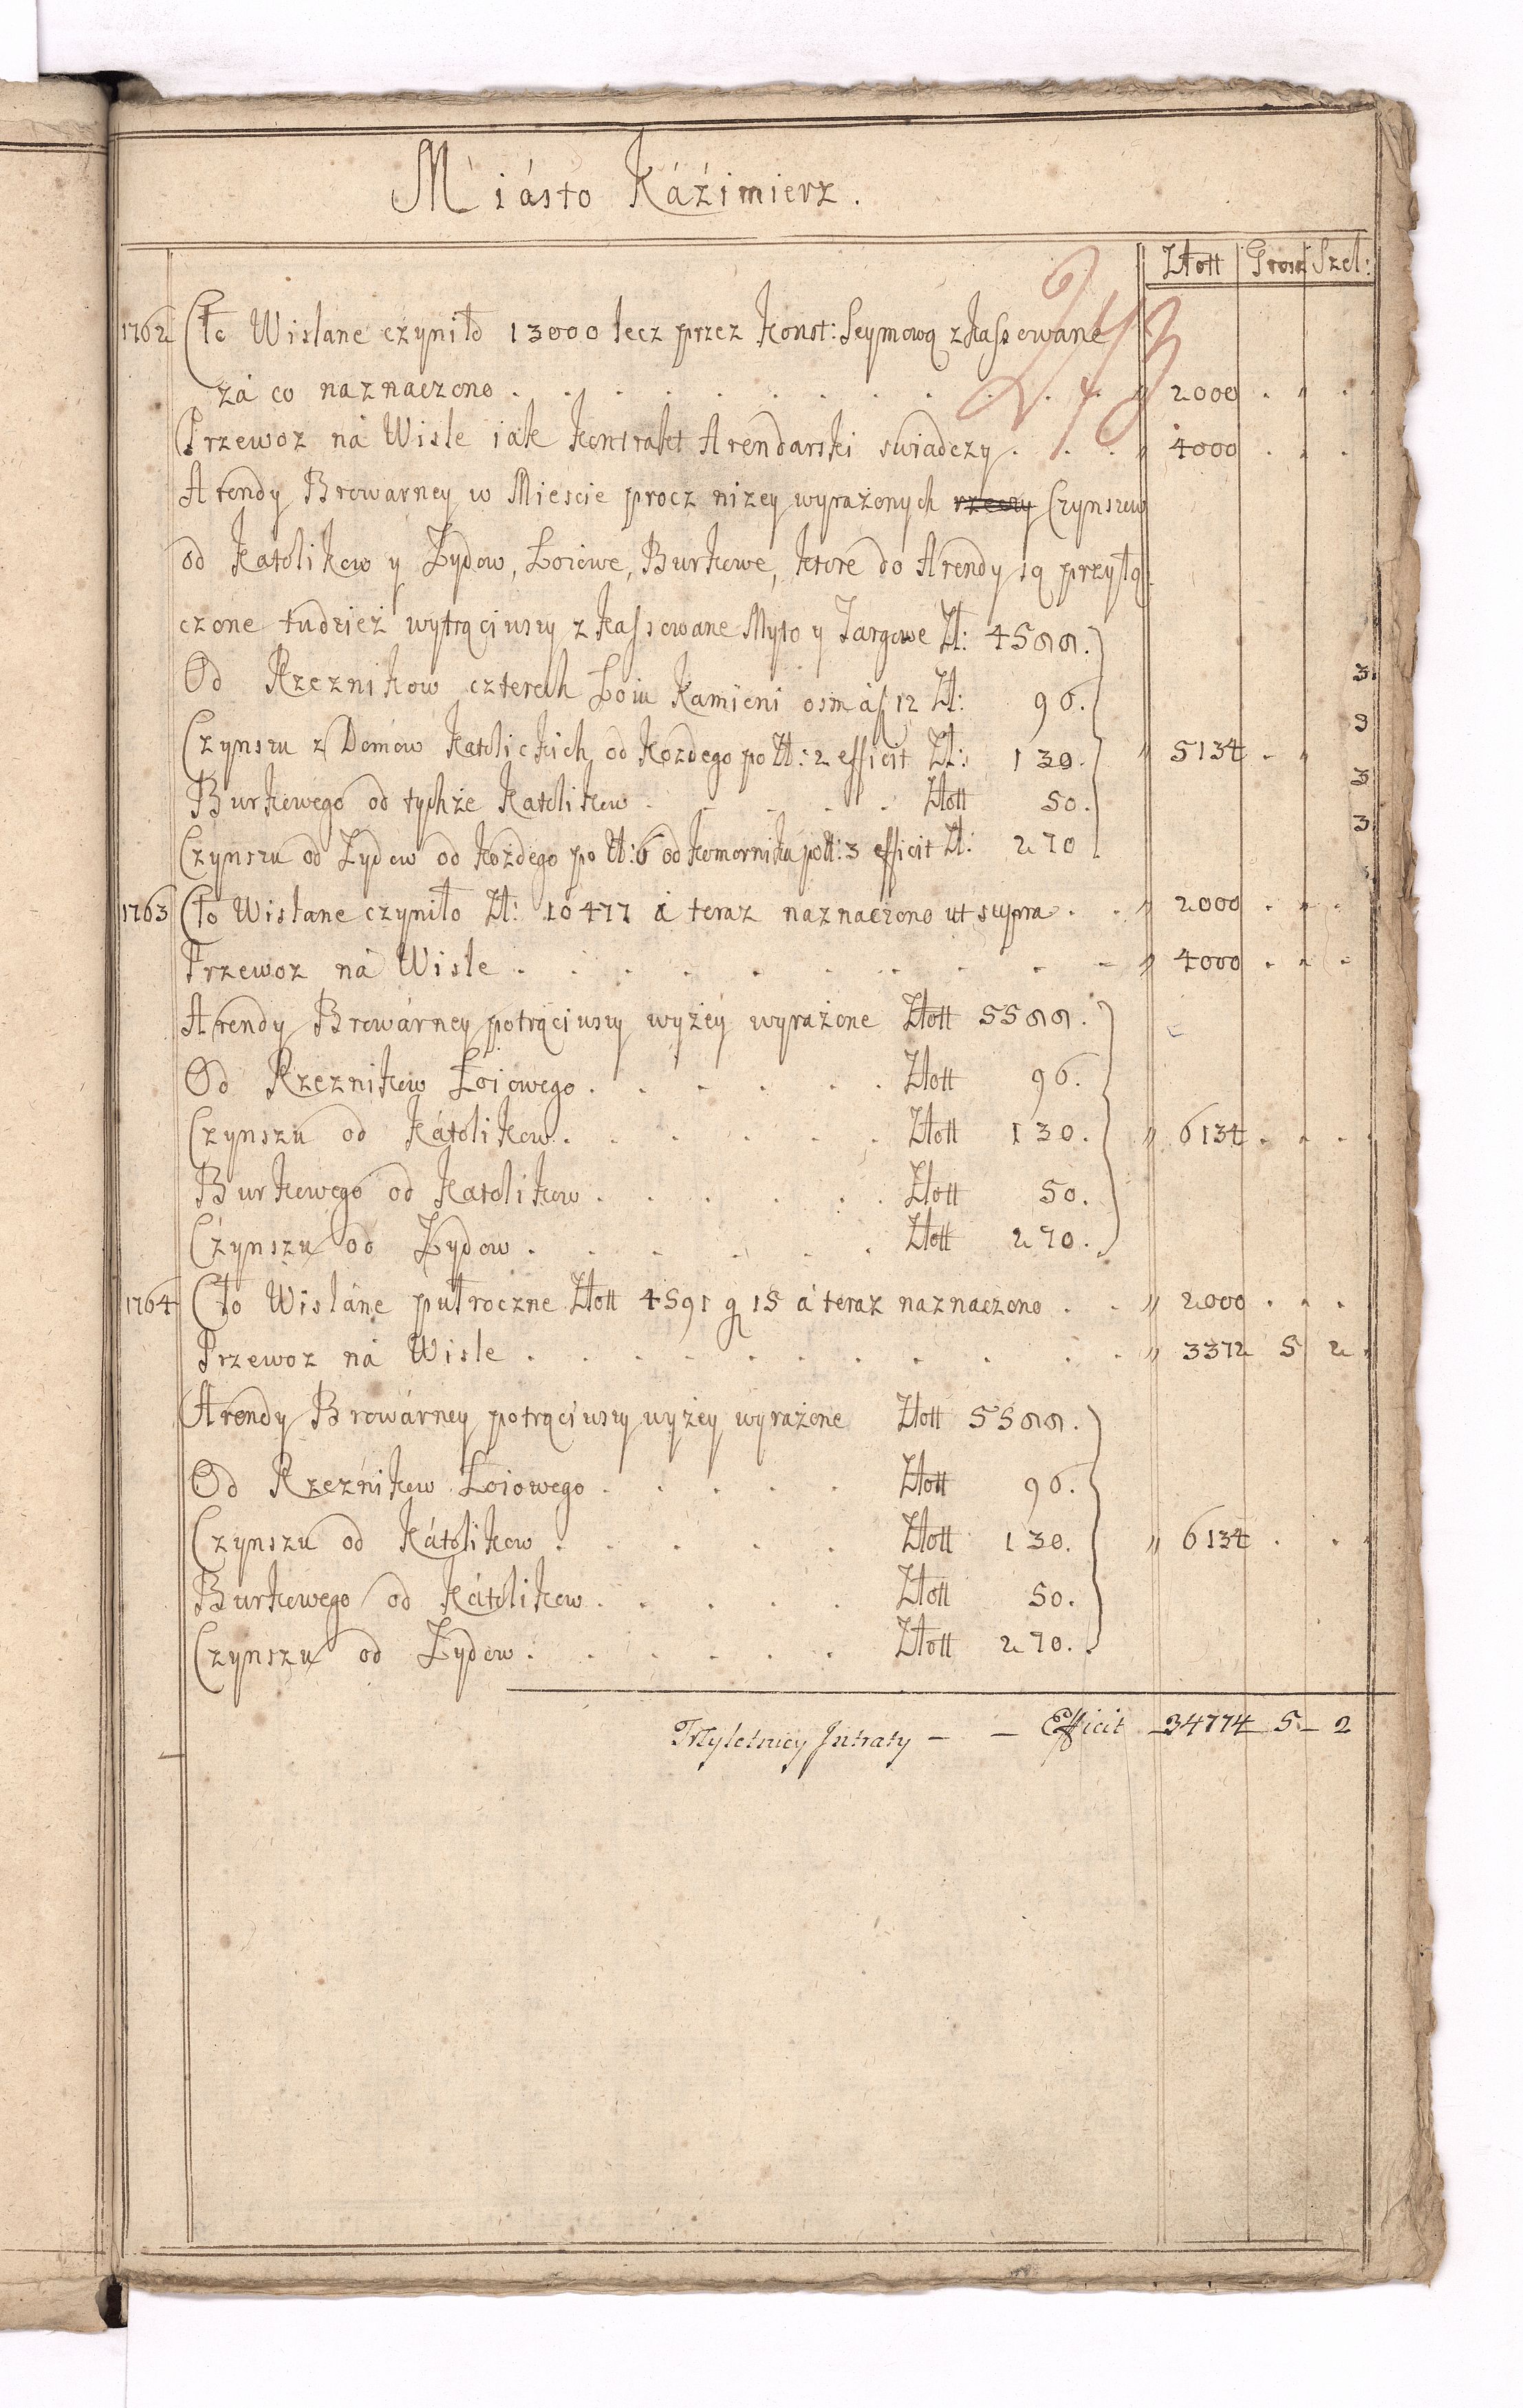 Miásto Káźimierz.
Złott Grosz Szel:
243
1762 Cło Wislane czyniło 13000 lecz przez Konst: Seymową zkassowane
zá co naznaczono . . . . . . . . . . . " 2000 . " .
Przewoz ná Wisle iak Kontrakt Arendarski swiadczy . . . " 4000 . . .
Arendy Browarney w Miescie procz nizey wyrażonych rzeczy Czynszow
od Katolikow y Zydow, Łoiowe, Burkowe, ktore do Arendy są przyłą:
czone tudzież wytrąciwszy zkassowane Myto y Targowe Zł: 4588.
Od Rzeznikow czterech Łoiu Kamieni osm á 12 Zł: 96.
Czynszu z Domow Katolickich od Kozdego po Zł: 2 efficit Zł: 130. " 5134 . "
Burkowego od tychże Katolikow . . . . . Złott 50.
Czynszu od Zydow od Kożdego po Zł: 6 od Komornika po Zł: 3 efficit Zł: 270
3
9
3
3
1763 Cło Wislane czyniło Zł: 10477 á teraz naznaczono ut supra . . " 2000 . " .
Przewoz ná Wisle . . . . . . . . . . " 4000 . " .
Arendy Browárney potrąciwszy wyżey wyrażone Złott 5588.
Od Rzeznikow Łoiowego . . . . . . Złott 96.
Czynszu od Kátolikow . . . . . . Złott 130. " 6134 . . .
Burkowego od Katolikow . . . . . . Złott 50.
Czynszu od Zydow . . . . . . Złott 270.
1764 Cło Wisláne pułroczne Złott 4591 g 15 á teraz naznaczono . . " 2000 . . .
Przewoz ná Wisle . . . . . . . . . . . " 3372 5 2.
Arendy Browárney potrąciwszy wyżey wyrażone Złott 5588.
Od Rzeźnikow Łoiowego . . . . . Złott 96.
Czynszu od Kátolikow . . . . . Złott 130. " 6134 . . .
Burkowego od Kátolikow . . . . . Złott 50.
Czynszu od Zydow . . . . . . Złott 270.
Trzyletniey Jntraty — — Efficit — 34774 5 — 2